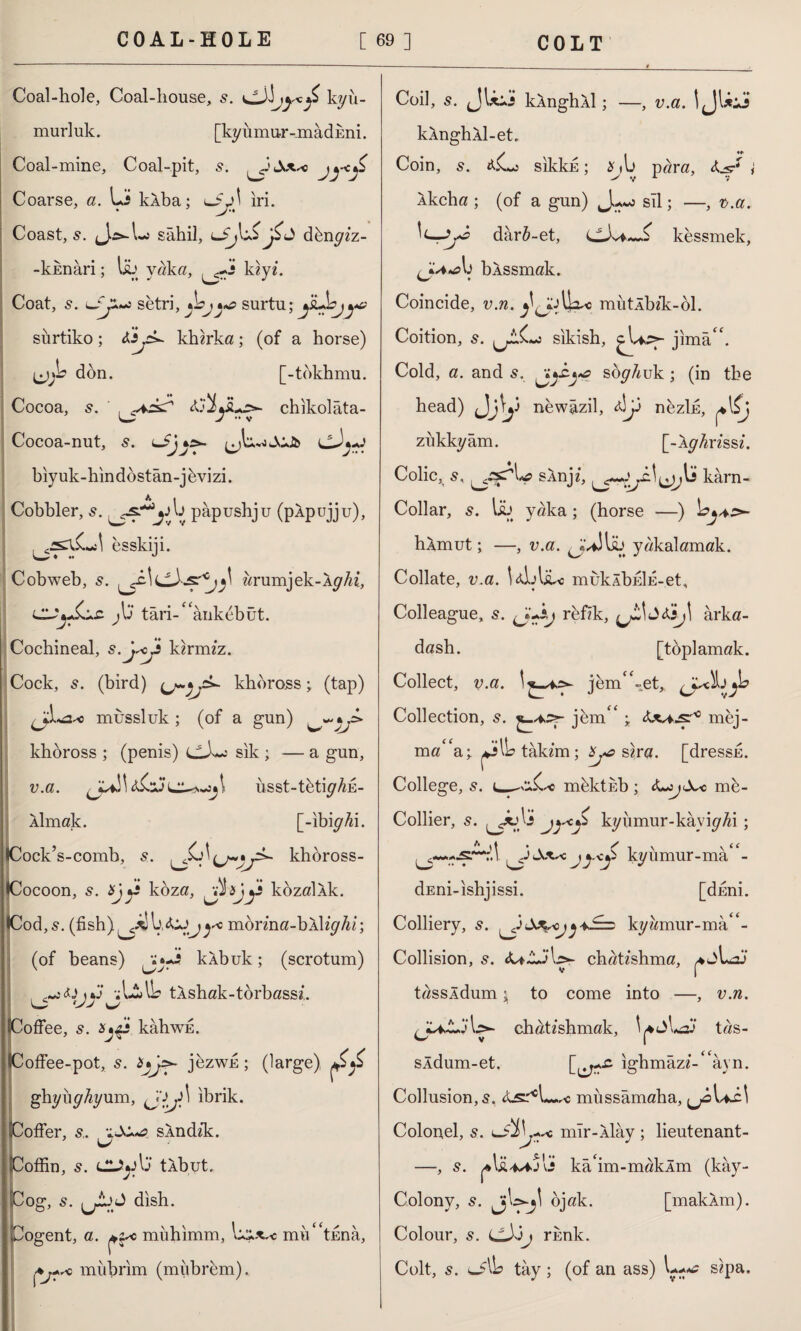 COAL-HOLE [ 69 ] COLT
Coal-hole, Coal-house, s. كومورلك kyü-
murluk. [kyümur-mādEni.
Coal-mine, Coal-pit, s. كومور معدنى
Coarse, a. قبا kÀba; ايرى iri.
Coast, s. ساحل sāhil, دكز كنارى dèngiz-
-kEnāri; يقا yaka, قيى kiyi.
Coat, s. سترى sètri, صورطو surtu; سورطقو
sürtiko; خرقه khirka; (of a horse)
طون dòn. [-tòkhmu.
Cocoa, s. چيقولاته تخمى chikolāta-
Cocoa-nut, s. بيوك هندوستان جوزى
bìyuk-hìndòstān-jèvizi.
Cobbler, s. پاپوشجى pāpushju (pÀpujju),
اسكيجى èsskiji.
Cobweb, s. اورومجك اغى urumjek-Àghi,
تار عنكبوت tāri-‘‘ānkèbūt.
Cochineal, s. قرمز kirmiz.
Cock, s. (bird) خروس khòross; (tap)
مصلق mùssluk; (of a gun) خروس
khòross; (penis) سك sik; — a gun,
v.a. اوست تتكه المق üsst-tètighE-
Àlmak. [-ibighi.
Cock’s-comb, s. خروس ايبكى khòross-
Cocoon, s. قوزه kòza, قوزه‌لق kòzalÀk.
Cod, s. (fish) مورينه بالغى mòrina-bÀlighi;
(of beans) قبوق kÀbuk; (scrotum)
طاشاق توربه‌سى tÀshak-tòrbassi.
Coffee, s. قهوه kahwE.
Coffee-pot, s. جزوه jèzwE; (large) كوكم
ghyüghyum, ابريق ibrik.
Coffer, s. صندق sÀndik.
Coffin, s. تابوت tÀbut.
Cog, s. ديش dìsh.
Cogent, a. مهم mühimm, معتنا mü‘‘tEnà,
مبرم mübrim (mübrèm).
Coil, s. قنغال kÀnghÀl; —, v.a. قنغال ا
kÀnghÀl-et.
Coin, s. سكه sikkE; پاره para, اقچه
Àkcha; (of a gun) سيل sīl; —, v.a.
ضرب ا darb-et, كسمك kèssmek,
باصمق bÀssmak.
Coincide, v.n. مطابق او mütÀbik-òl.
Coition, s. سكش sikish, جماع jimā‘‘.
Cold, a. and s. صوغوق sòghuk; (in the
head) نوازل nèwāzil, نزله nèzlE, زكام
zükkyām. [-Àghrissi.
Colic, s. صانجى sÀnji, قارن اغريسى kārn-
Collar, s. يقا yaka; (horse —) حموط
hÀmut; —, v.a. يقالمق yakalamak.
Collate, v.a. مقابله ا mukÀbElE-et.
Colleague, s. رفيق rèfik, ارقه‌داش àrka-
dash. [tòplamak.
Collect, v.a. جمع ا jèm‘‘-et, طوپلامق
Collection, s. جمع jèm‘‘; مجمعه mèj-
ma‘‘a; طاقم tàkim; صره sira. [dressE.
College, s. مكتب mèktEb; مدرسه mè-
Collier, s. كومور قايغى kyümur-kàyighi;
كومور معدنى ايشجيسى kyümur-mā‘‘-
dEni-ìshjissi. [dEni.
Colliery, s. كمور معدنى kyümur-mā‘‘-
Collision, s. چاتشمه chātishma, تصادم
tassÀdum; to come into —, v.n.
چاتشمق chātishmak, تصادم ا tas-
sÀdum-et. [عين ìghmāzi-‘‘àyn.
Collusion, s. مسامحه müssāmaha, اغماض
Colonel, s. مير الاى mīr-Àlāy; lieutenant-
—, s. قائممقام kā‘im-makÀm (kày-
Colony, s. اوجاق òjak. [makÀm).
Colour, s. رنك rEnk.
Colt, s. طاى tày; (of an ass) صيپا sipa.